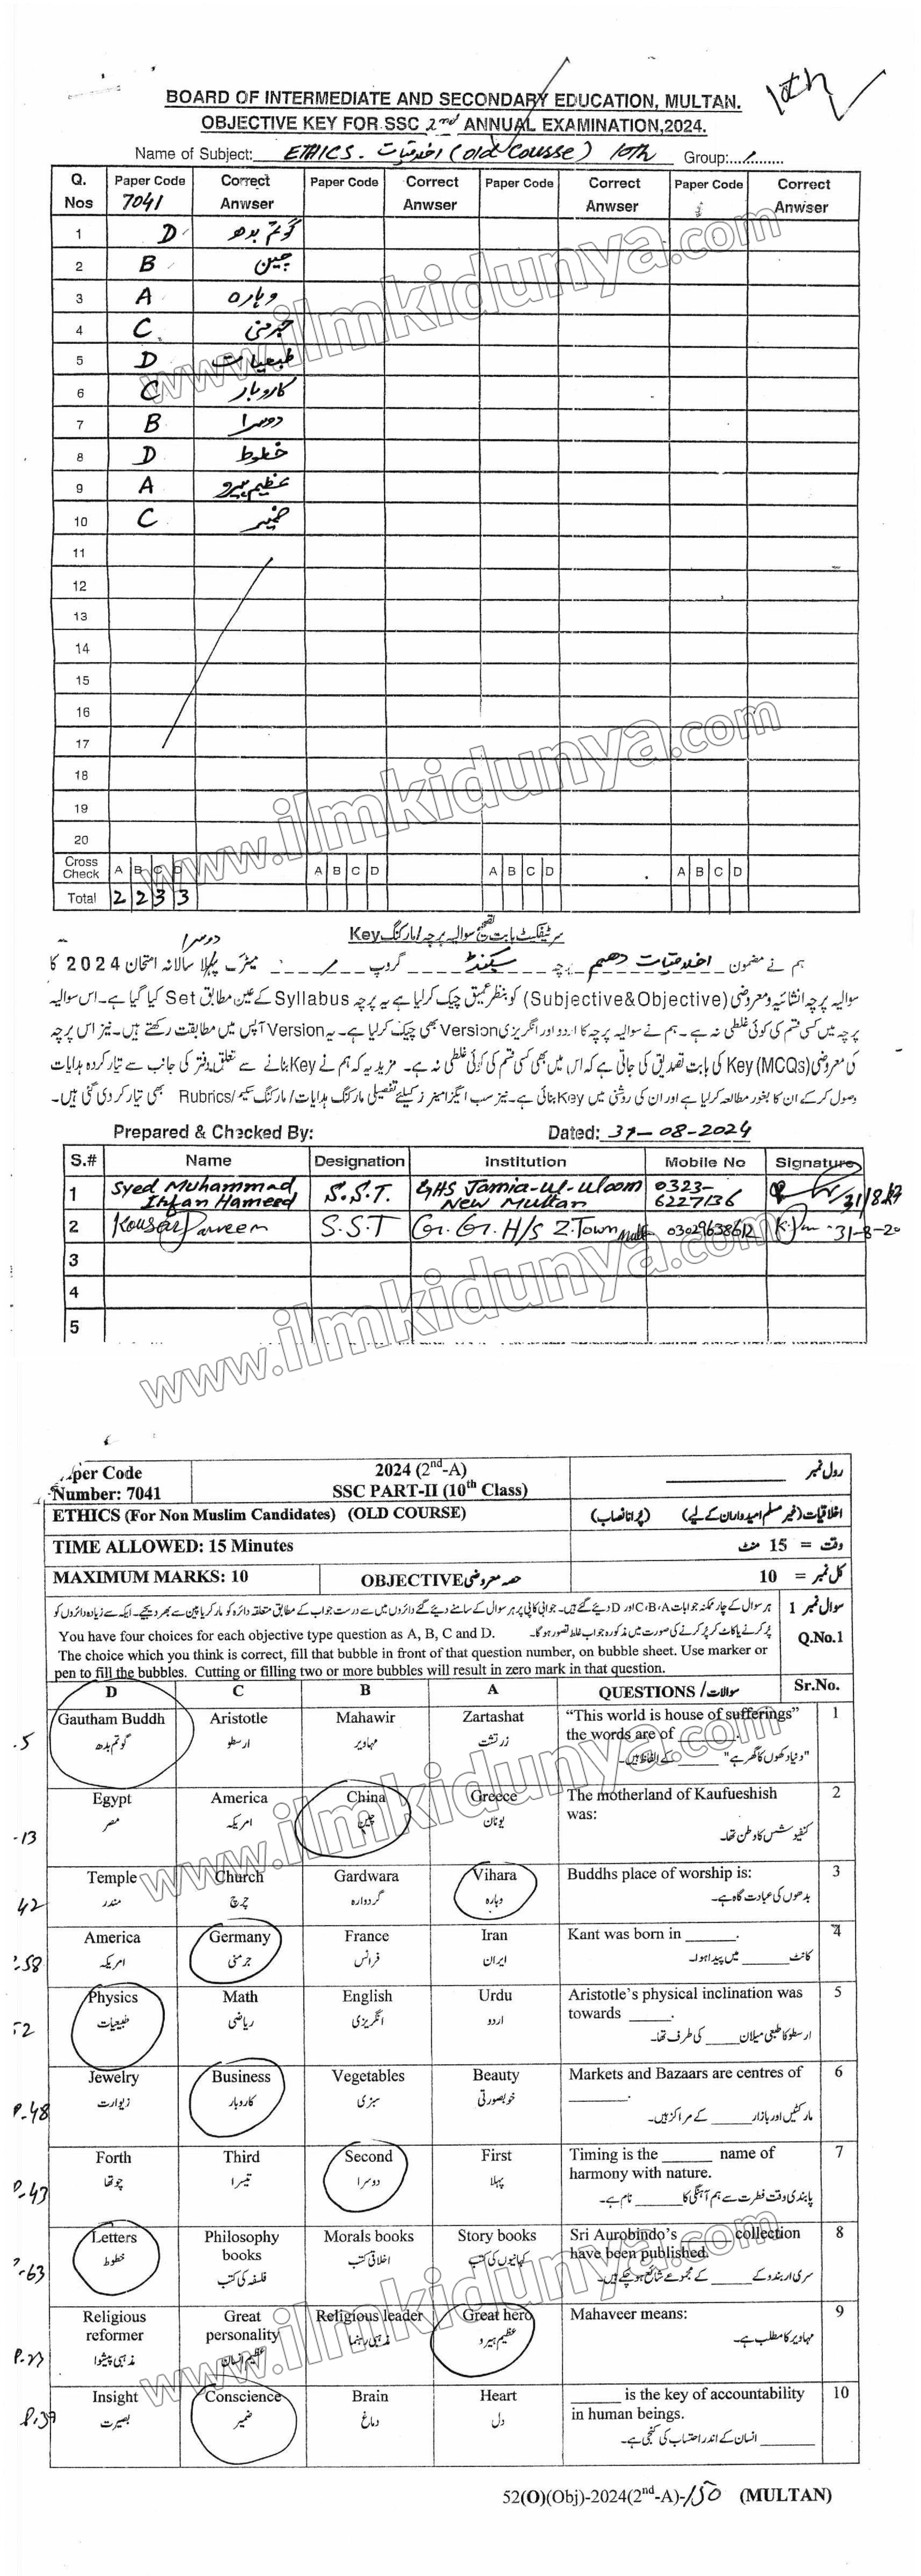 10th
BOARD OF INTERMEDIATE AND SECONDARY EDUCATION, MULTAN.
OBJECTIVE KEY FOR SSC 2nd ANNUAL EXAMINATION,2024.
Name of Subject: ETHICS. اخلاقیات (old Course) 10th Group:...1........
Q. Nos Paper Code 7041 Correct Anwser Paper Code Correct Anwser Paper Code Correct Anwser Paper Code Correct Anwser
1 D گوتم بدھ
2 B چین
3 A وہارہ
4 C جرمنی
5 D طبعیات
6 C کاروبار
7 B دوسرا
8 D خطوط
9 A عظیم ہیرو
10 C ضمیر
11
12
13
14
15
16
17
18
19
20
Cross Check A B C D A B C D A B C D A B C D
Total 2 2 3 3
سرٹیفکیٹ بابت تصحیح سوالیہ پرچہ / مارکنگ Key
دوسرا
ہم نے مضمون اخلاقیات دھم پرچہ سیکنڈ گروپ میٹرک پہلا سالانہ امتحان 2024 کا
سوالیہ پرچہ انشائیہ ومعروضی (Subjective&Objective) کو بنظر عمیق چیک کرلیا ہے یہ پرچہ Syllabus کے عین مطابق Set کیا گیا ہے۔ اس سوالیہ
پرچہ میں کسی قسم کی کوئی غلطی نہ ہے۔ ہم نے سوالیہ پرچہ کا اردو اور انگریزی Version بھی چیک کرلیا ہے۔ یہ Version آپس میں مطابقت رکھتے ہیں۔ نیز اس پرچہ
کی معروضی (MCQs) Key کی بابت تصدیق کی جاتی ہے کہ اس میں بھی کسی قسم کی کوئی غلطی نہ ہے۔ مزید یہ کہ ہم نے Key بنانے سے متعلق دفتر کی جانب سے تیار کردہ ہدایات
وصول کرکے ان کا بغور مطالعہ کرلیا ہے اور ان کی روشنی میں Key بنائی ہے۔ نیز سب ایگزامینرز کیلئے تفصیلی مارکنگ ہدایات/ مارکنگ سکیم /Rubrics بھی تیار کردی گئی ہیں۔
Prepared & Checked By: Dated: 31-08-2024
S.# Name Designation Institution Mobile No Signature
1 Syed Muhammad Irfan Hameed S.S.T. GHS Jamia-ul-uloom New Multan 0323-6227136 31/8/24
2 Kousar Parveen S.S.T G.G.H/S Z.Town 03029638612 31-8-20
3
4
5
www.ilmkidunya.com
Paper Code Number: 7041 2024 (2nd-A) SSC PART-II (10th Class) رول نمبر
ETHICS (For Non Muslim Candidates) (OLD COURSE) اخلاقیات (غیر مسلم امیدواران کے لیے) (پرانا نصاب)
TIME ALLOWED: 15 Minutes وقت = 15 منٹ
MAXIMUM MARKS: 10 OBJECTIVE حصہ معروضی کل نمبر = 10
سوال نمبر 1 ہر سوال کے چار ممکنہ جوابات A، B، C اور D دیئے گئے ہیں۔ جوابی کاپی پر ہر سوال کے سامنے دیئے گئے دائروں میں سے درست جواب کے مطابق متعلقہ دائرہ کو مارکر یا پین سے بھر دیجیے۔ ایک سے زیادہ دائروں کو
پُر کرنے یا کاٹ کر پُر کرنے کی صورت میں مذکورہ جواب غلط تصور ہو گا۔
Q.No.1 You have four choices for each objective type question as A, B, C and D.
The choice which you think is correct, fill that bubble in front of that question number, on bubble sheet. Use marker or
pen to fill the bubbles. Cutting or filling two or more bubbles will result in zero mark in that question.
D C B A QUESTIONS / سوالات Sr.No.
Gautham Buddh Aristotle Mahawir Zartashat “This world is house of sufferings” the words are of ______. 1
گوتم بدھ ارسطو مہاویر زرتشت "دنیا دکھوں کا گھر ہے" ______ کے الفاظ ہیں۔
Egypt America China Greece The motherland of Kaufueshish was: 2
مصر امریکہ چین یونان کنفیوشس کا وطن تھا۔
Temple Church Gardwara Vihara Buddhs place of worship is: 3
مندر چرچ گردوارہ وہارہ بدھوں کی عبادت گاہ ہے۔
America Germany France Iran Kant was born in ______. 4
امریکہ جرمنی فرانس ایران کانٹ ______ میں پیدا ہوا۔
Physics Math English Urdu Aristotle’s physical inclination was towards _____. 5
طبیعیات ریاضی انگریزی اردو ارسطو کا طبعی میلان _____ کی طرف تھا۔
Jewelry Business Vegetables Beauty Markets and Bazaars are centres of _______. 6
زیورات کاروبار سبزی خوبصورتی مارکٹیں اور بازار _____ کے مراکز ہیں۔
Forth Third Second First Timing is the ______ name of harmony with nature. 7
چوتھا تیسرا دوسرا پہلا پابندی وقت فطرت سے ہم آہنگی کا ______ نام ہے۔
Letters Philosophy books Morals books Story books Sri Aurobindo’s ______ collection have been published. 8
خطوط فلسفہ کی کتب اخلاقی کتب کہانیوں کی کتب سری اربندو کے _____ کے مجموعے شائع ہو چکے ہیں۔
Religious reformer Great personality Religious leader Great hero Mahaveer means: 9
مذہبی پیشوا عظیم انسان مذہبی راہنما عظیم ہیرو مہاویر کا مطلب ہے۔
Insight Conscience Brain Heart ______ is the key of accountability in human beings. 10
بصیرت ضمیر دماغ دل ______ انسان کے اندر احتساب کی کنجی ہے۔
52(O)(Obj)-2024(2nd-A)-150 (MULTAN)